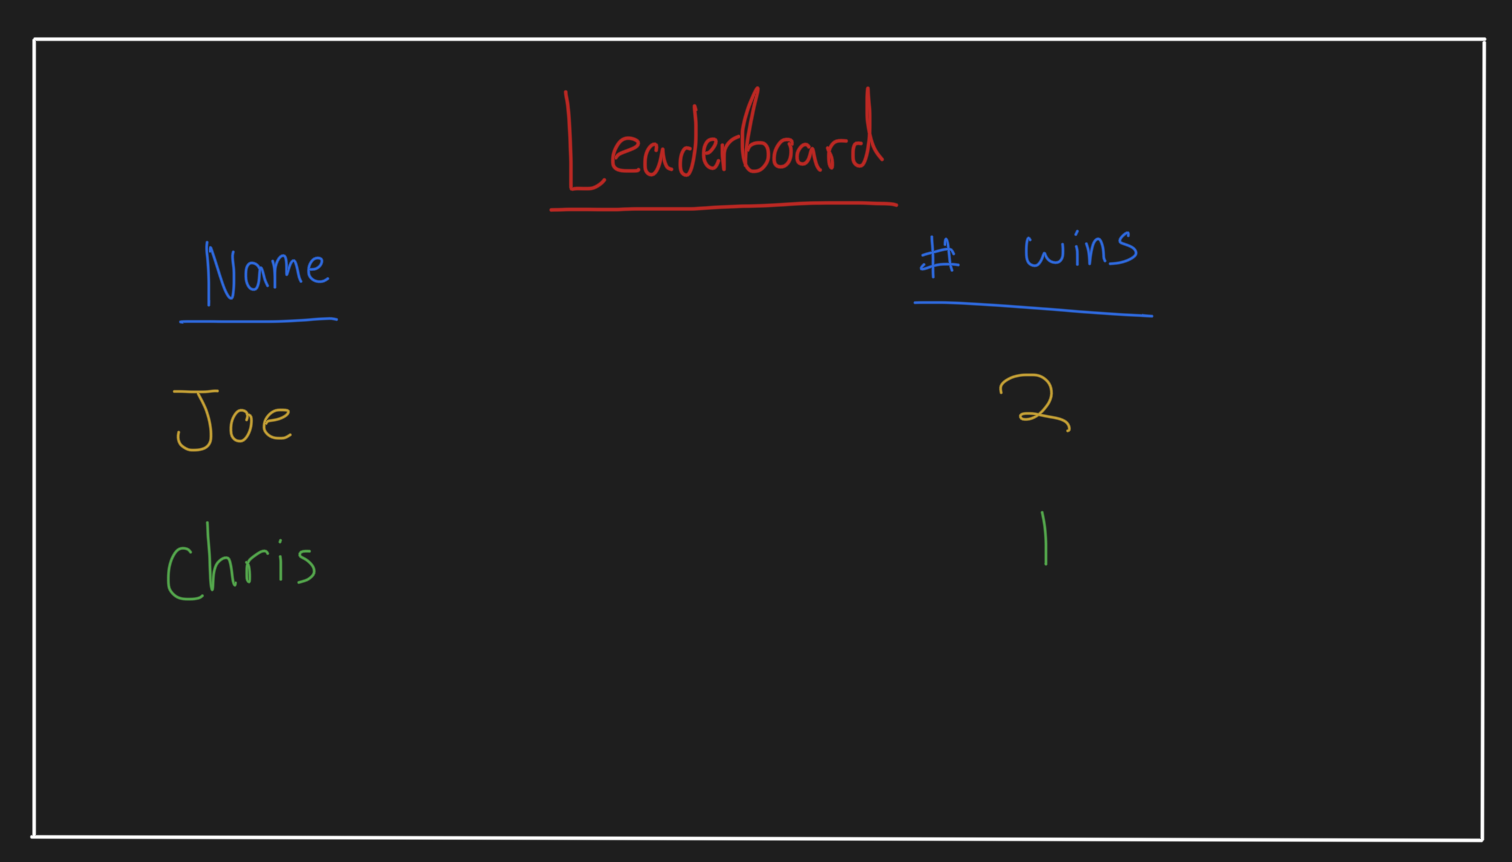 Leaderboard
Name # wins
Joe 2
Chris 1